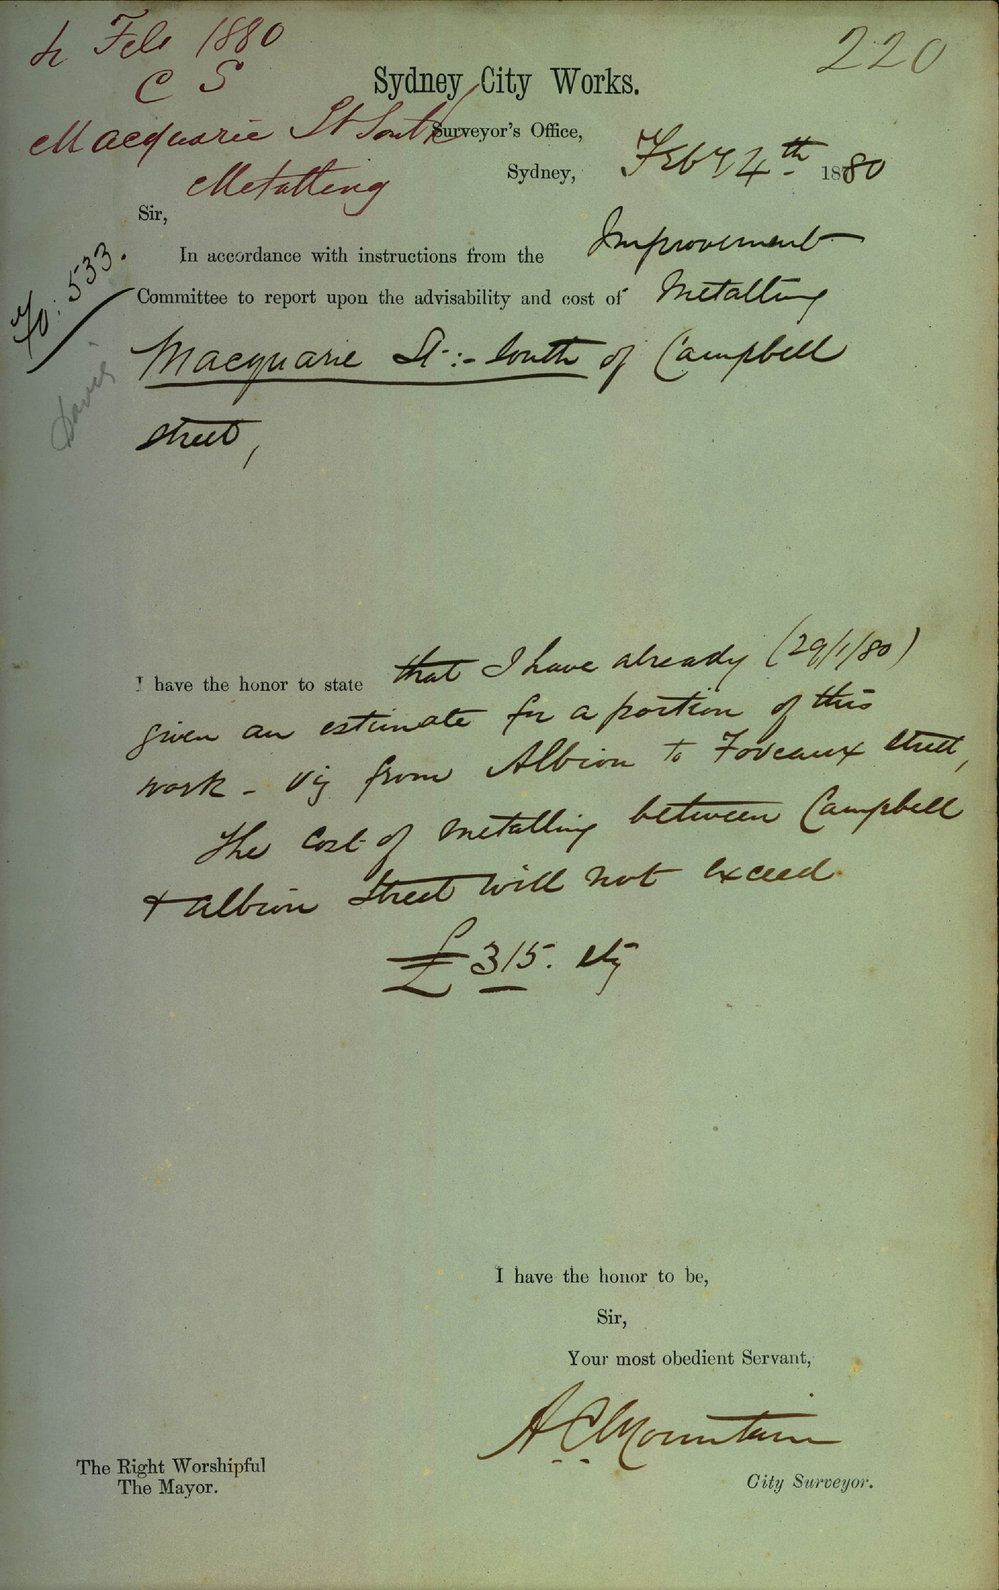 4 Feb 1880
220
C S
Sydney City Works.
Macquarie St South
Surveyor's Office,
Metalling
Sydney, Feby 4th 1880
Sir,
533.
In accordance with instructions from the Improvement
Committee to report upon the advisability and cost of Metalling
Macquarie St:- South of Campbell
Davis
street,
I have the honor to state that I have already (29/1/80)
given an estimate for a portion of this
work - viz from Albion to Foveaux street,
The cost of metalling between Campbell
& Albion Street will not exceed
£315. stg
I have the honor to be,
Sir,
Your most obedient Servant,
A C Mountain
The Right Worshipful
The Mayor.
City Surveyor.